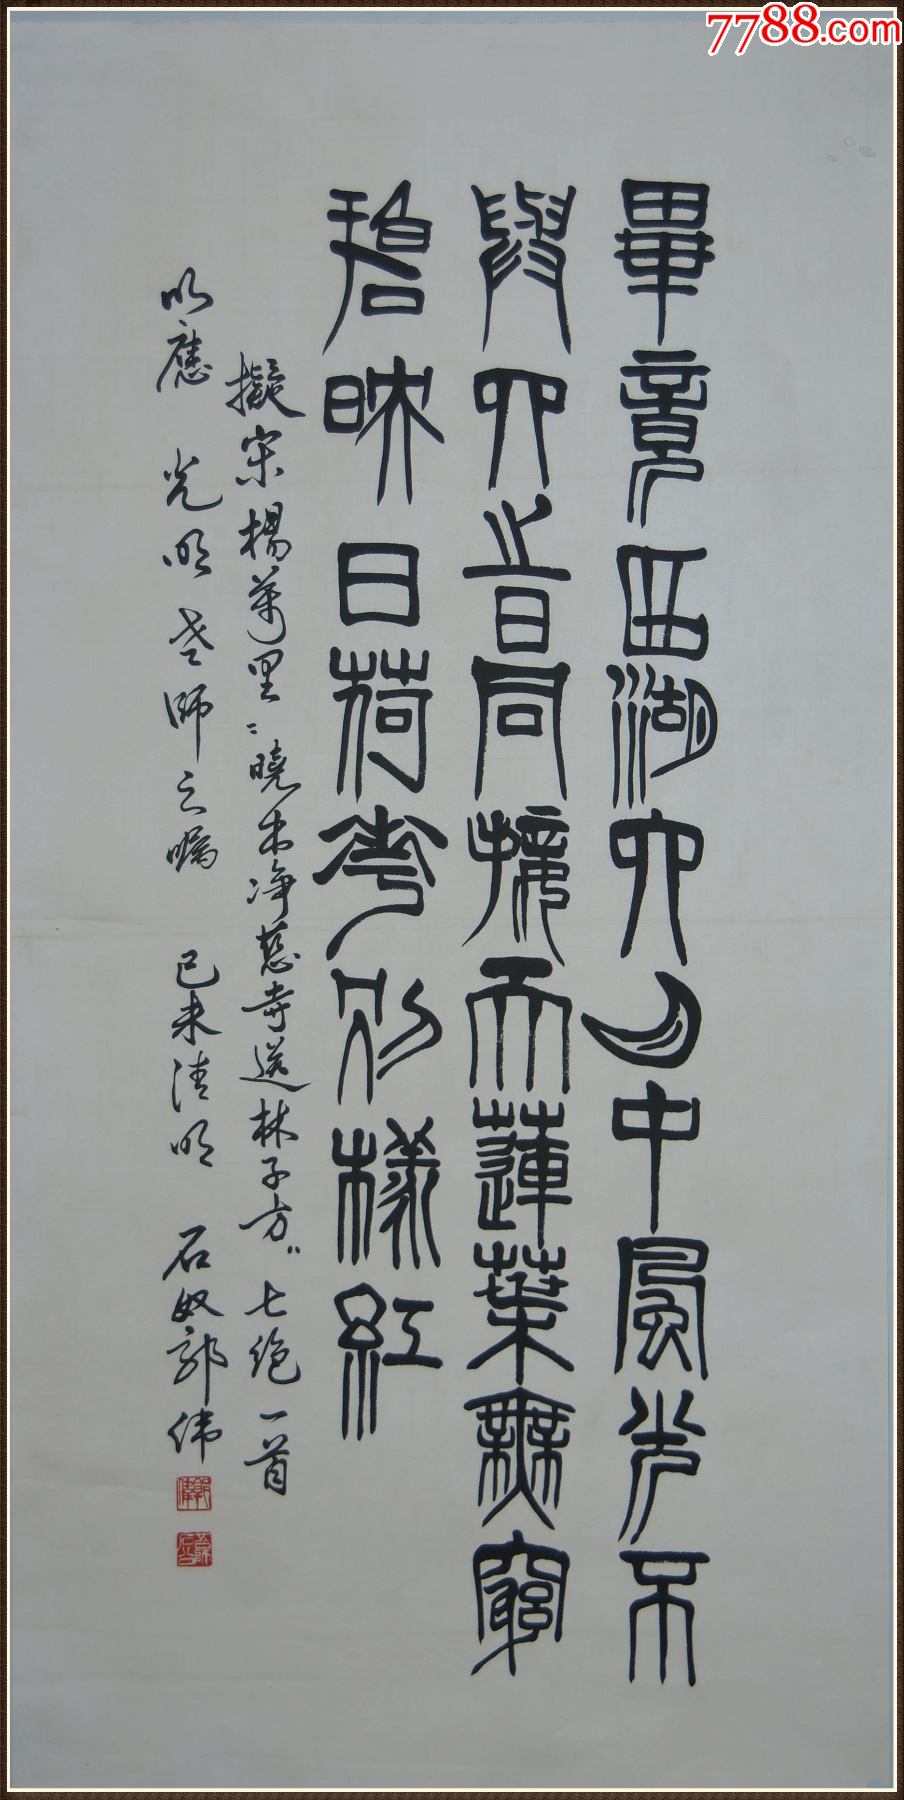 7788.com
畢竟西湖六月中風光不
與四時同接天蓮葉無窮
碧映日荷花別樣紅
擬宋楊萬里"曉出净慈寺送林子方"七绝一首
以應 光明老師之嘱 己未清明 石奴郭偉